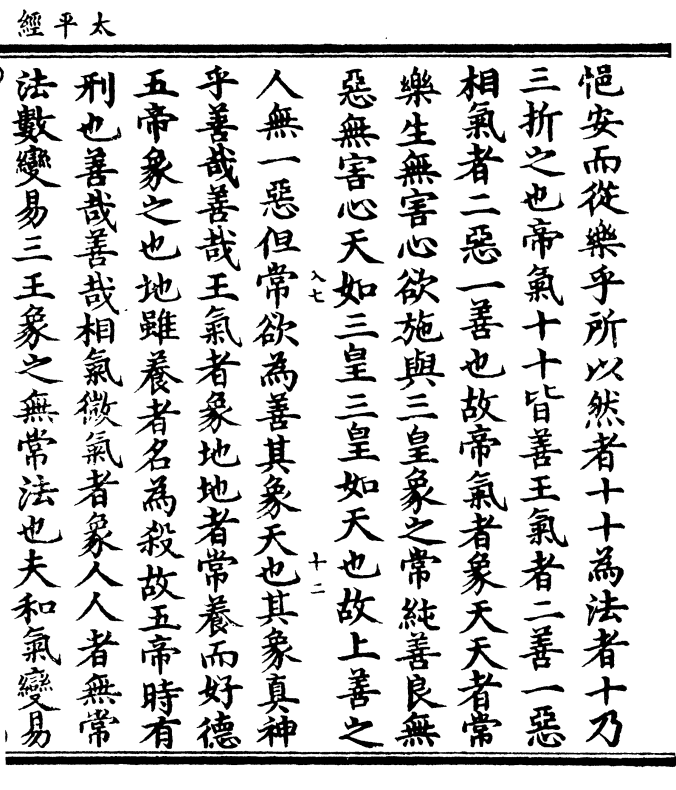 太平經
悒安而從樂乎所以然者十十為法者十乃
三折之也帝氣十十皆善王氣者二善一惡
相氣者二惡一善也故帝氣者象天天者常
樂生無害心欲施與三皇象之常純善良無
惡無害心天如三皇三皇如天也故上善之
入七
十二
人無一惡但常欲為善其象天也其象真神
乎善哉善哉王氣者象地地者常養而好德
五帝象之也地雖養者名為殺故五帝時有
刑也善哉善哉相氣微氣者象人人者無常
法數變易三王象之無常法也夫和氣變易